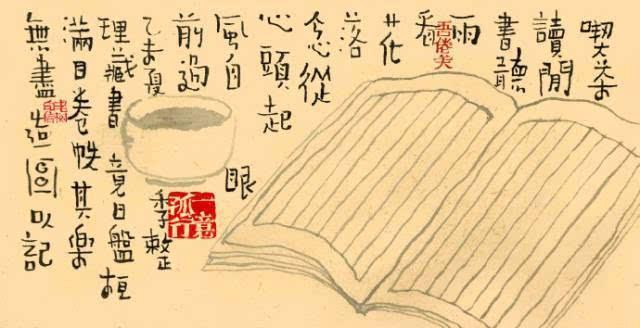 喫茶
讀閒
書聽
雨
看
花
落
念從
心頭起
風自
眼
前過
乙未夏季整
理藏書竟日盤桓
滿目卷帙其樂
無盡造圖以記
一意孤行